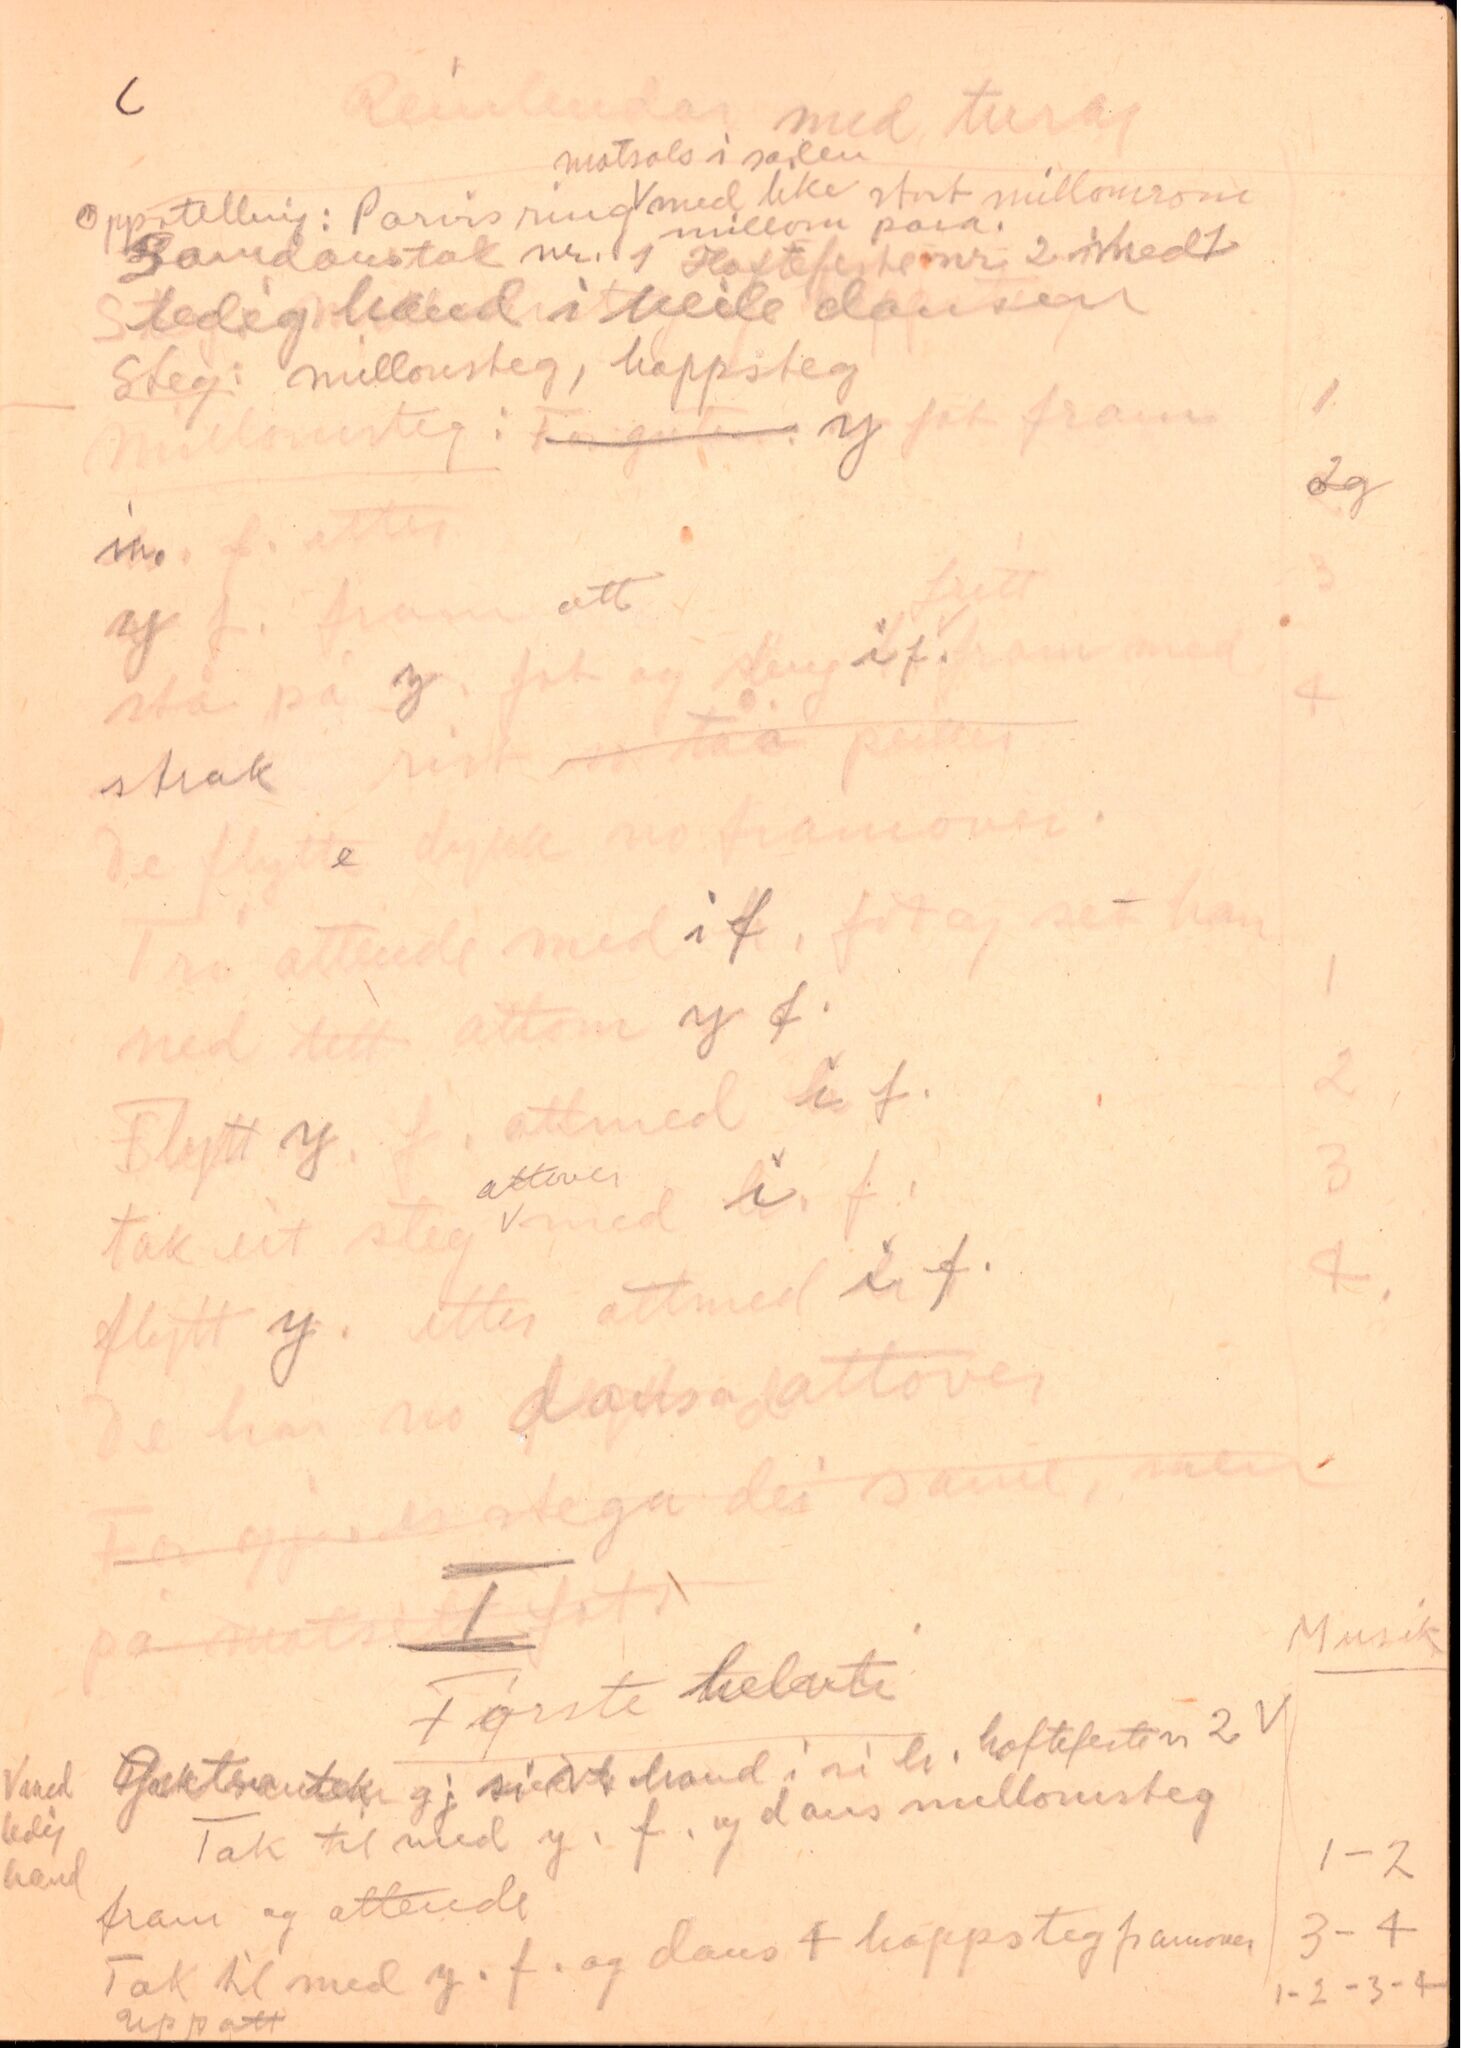 Reinlendar med turar
motsols i soilen
Oppstelling: Parvis ring med like stort millomrom
millom para.
Samdanstak nr. 1 Hoftefeste nr. 2 med
ledig hand i heile dansen
Steg: millomsteg, hoppsteg
Millomsteg: y fot fram 1
in. f. etter 2g
y f. fram att 3
fritt
stå på y. fot og sving i f. fram med 4
strak rist so tåa peiker
De flytte dykk no framover.
Trø attende med i f. fot og set han
ned tett attom y f. 1
Flytt y. f. attmed i f. 2
attover
tak eit steg med i. f. 3
flytt y. etter attmed i f. 4.
De har no dansa attover
stega dei same, men
på motsett fot.
I
Musik
Fyrste helvti
hand i si h. hoftefeste nr 2 V
V med ledig hand
Tak til med y. f. og dans millomsteg 1-2
fram og attende
Tak til med y. f. og dans 4 hoppsteg framover 3-4
upp att 1-2-3-4